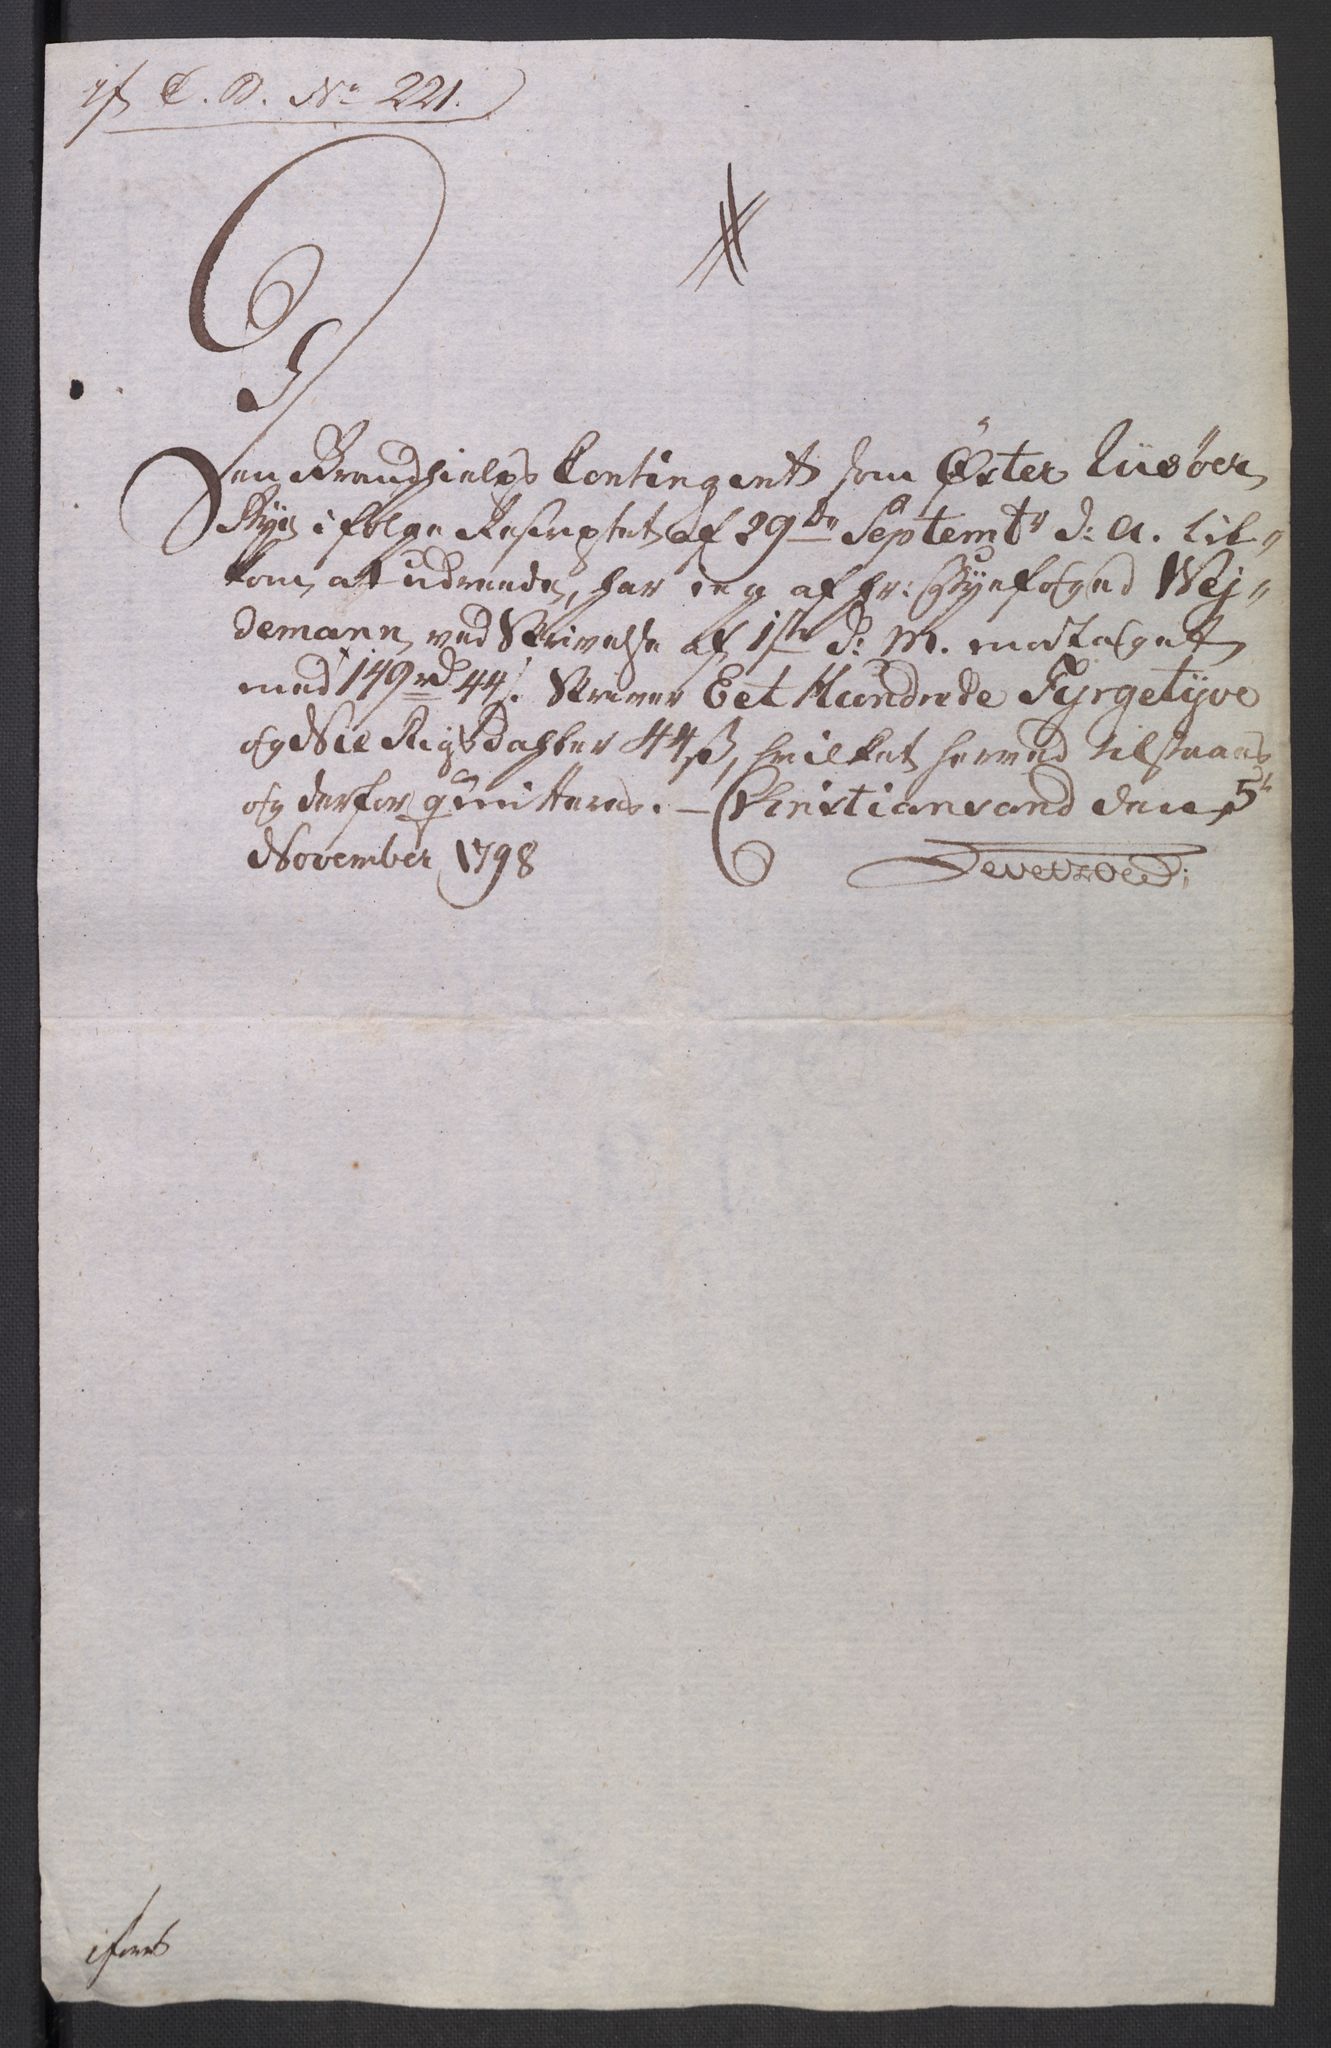 C. D. No 221.
Den Brandhielps Contingent som Öster Riisöer
Bye i følge Rescriptet af 29de Septembr d: A. til-
kom at udreede, har ieg af Hr: Byefoged Wej-
demann ved Skrivelse af 1ste d: M. modtaget
med 149 rd 44 s. Skriver Eet Hundrede Fyrgetyve
og Nie Rigsdahler 44 s, hvilket herved tilstaaes
og derfor quitteres. – Christiansand den 5te
November 1798